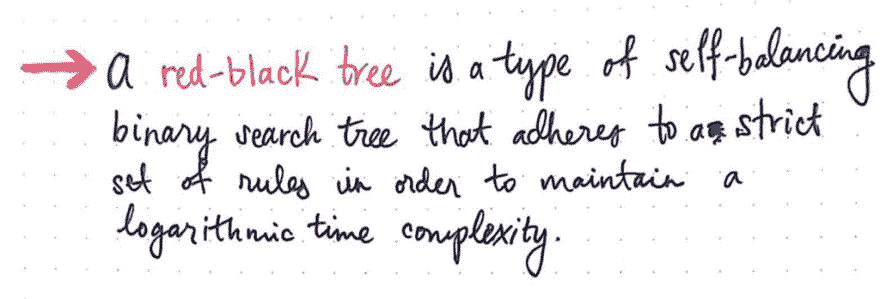 → A red-black tree is a type of self-balancing
binary search tree that adheres to a strict
set of rules in order to maintain a
logarithmic time complexity.